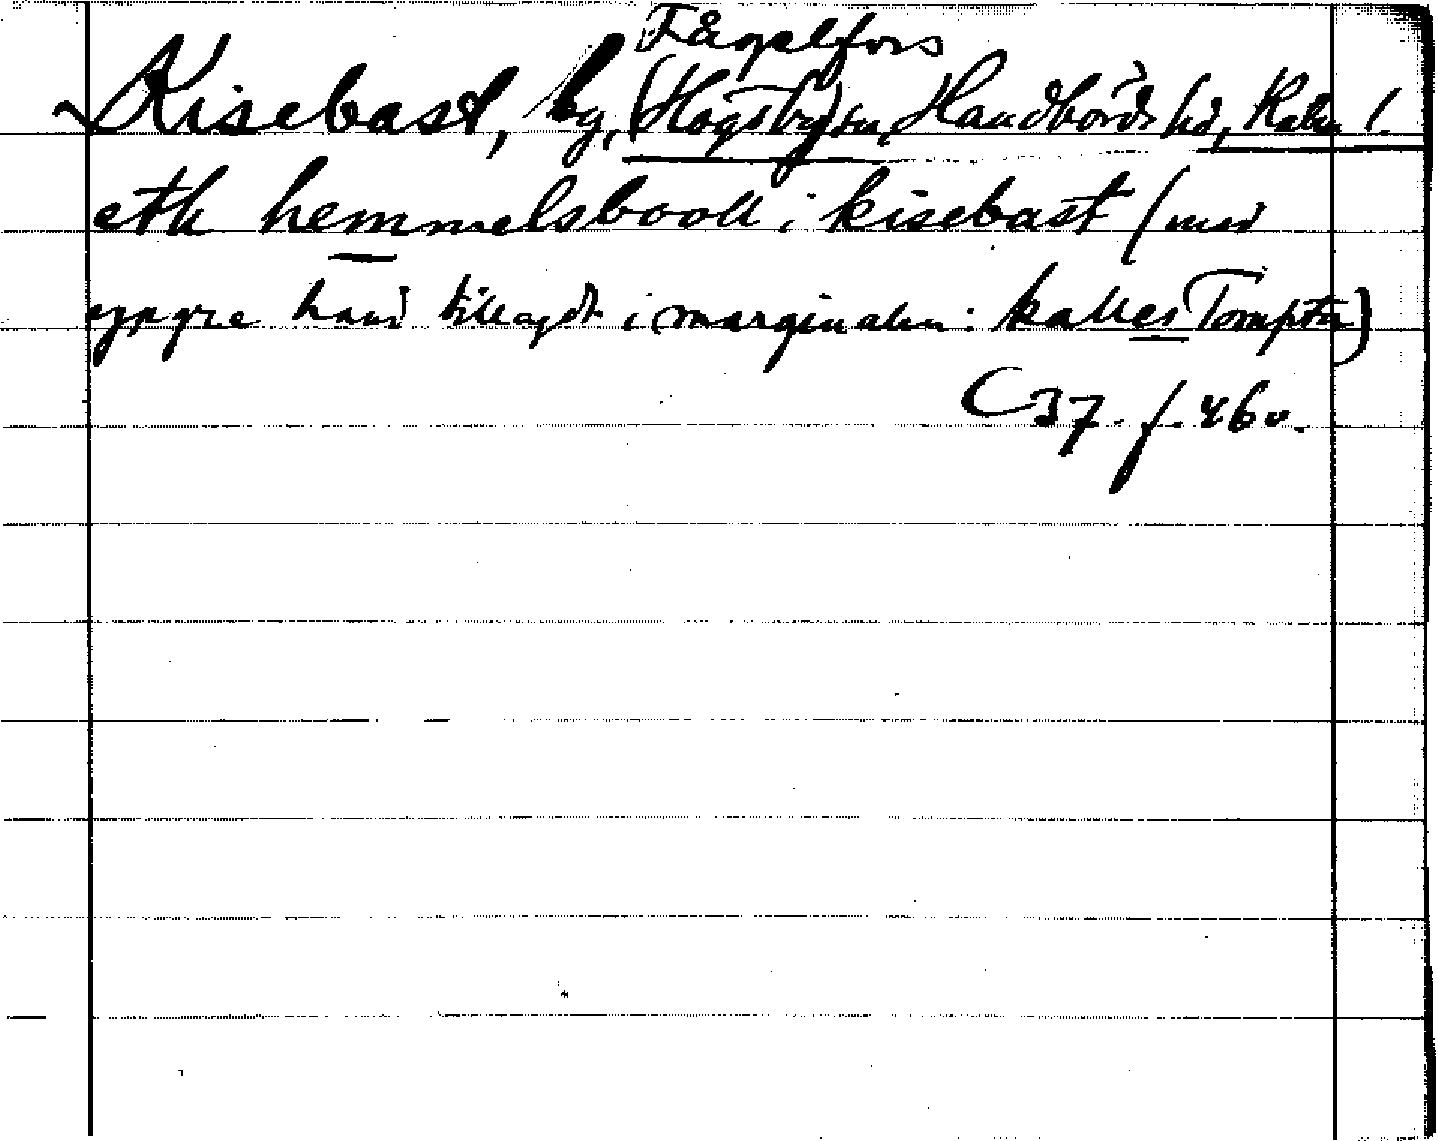 Fågelfors
~Kisebast, by, (Högsby) sn, Handbörds hd, Kalm l.
eth hemmelsbooll i kisebast (med
yngre hand tillagdt i marginalen: kalles Tompta)
C 37. f. 46 v.